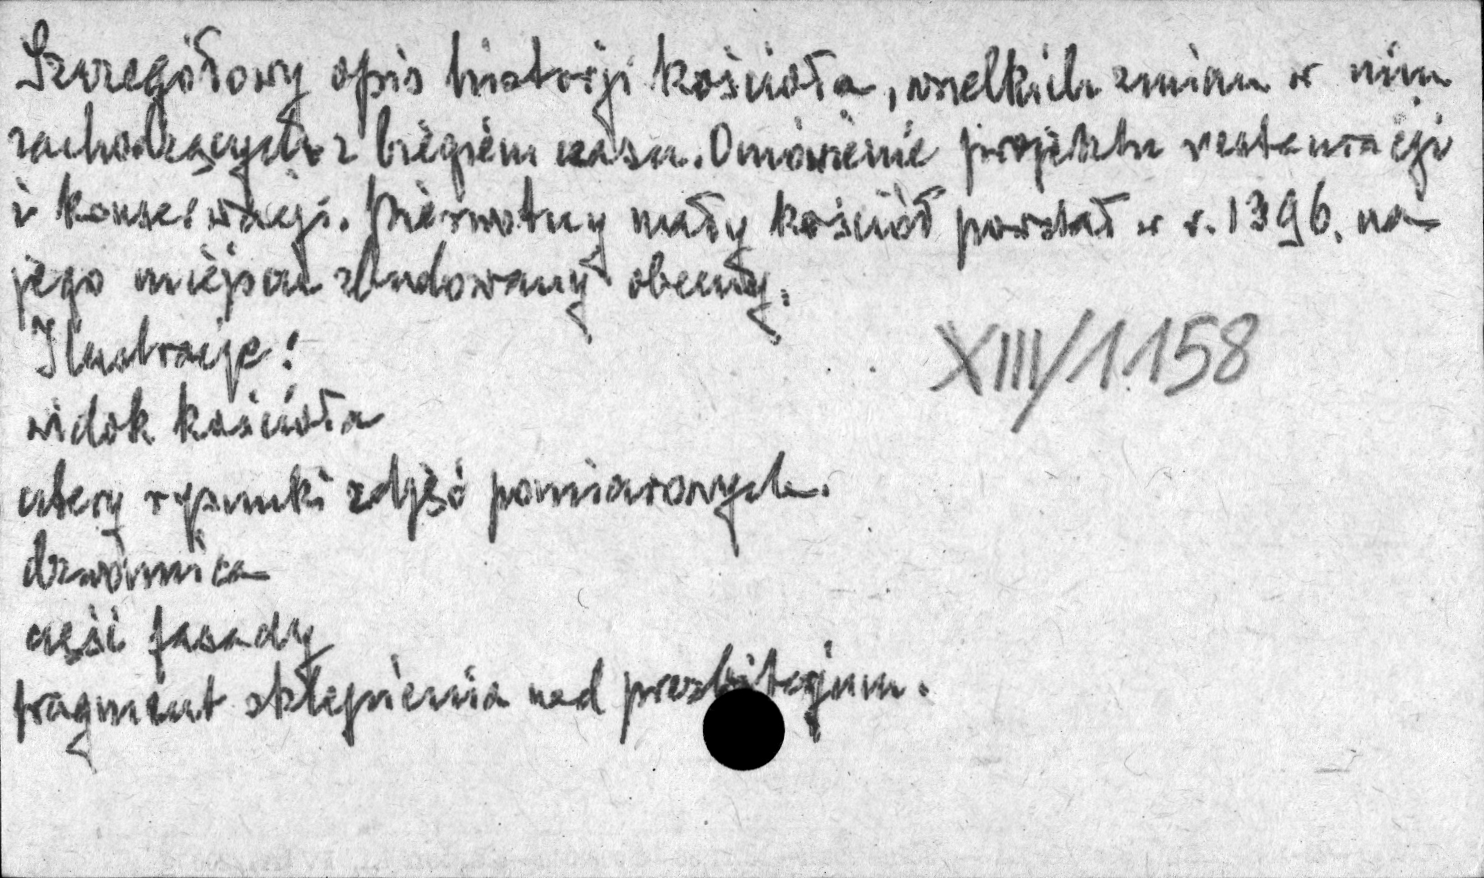 Szczegółowy opis historji kościoła, wszelkich zmian w nim
zachodzących z biegiem czasu. Omówienie projektu restauracji
i konserwacji. Pierwotny mały kościół powstał w r. 1396, na
jego miejscu zbudowany obecny.
Ilustracje:
XIII/1.158
widok kościoła
cztery rysunki zdjęć pomiarowych.
dzwonnica
część fasady
fragment sklepienia nad prezbiterjum.